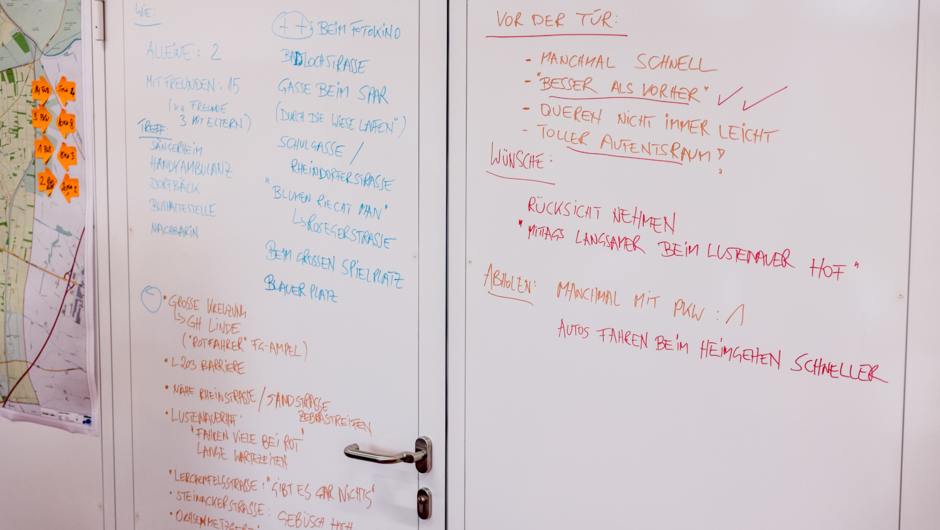 WE:
ALLEINE: 2
MIT FREUNDEN: 15
FREUNDE
3 MIT ELTERN)
TREFF
SÄNGERHEIM
HANDYAMBULANZ
DORFBÄCK
BUSHALTESTELLE
NACHBARIN
++ BEIM FOTOKINO
BADLOCHSTRASSE
GASSE BEIM SPAR
(DURCH DIE WIESE LAUFEN")
SCHULGASSE /
RHEINDORFERSTRASSE
"BLUMEN RIECHT MAN"
↳ ROSEGERSTRASSE
BEIM GROSSEN SPIELPLATZ
BLAUER PLATZ
- • GROSSE KREUZUNG
↳ GH LINDE
("ROTFAHRER" FG-AMPEL)
• L203 BARRIERE
• NÄHE RHEINSTRASSE / SANDSTRASSE
ZEBRASTREIFEN
• LUSTENAUERHOF:
"FAHREN VIELE BEI ROT"
LANGE WARTEZEITEN
• LERCHENFELDSTRASSE: "GIBT ES GAR NICHTS"
• STEINACKERSTRASSE: GEBÜSCH HOCH
VOR DER TÜR:
- MANCHMAL SCHNELL
- "BESSER ALS VORHER" ✓✓
- QUEREN NICHT IMMER LEICHT
- TOLLER AUFENTSRAUM!
WÜNSCHE:
RÜCKSICHT NEHMEN
"MITTAGS LANGSAMER BEIM LUSTENAUER HOF"
ABHOLEN: MANCHMAL MIT PKW: 1
AUTOS FAHREN BEIM HEIMGEHEN SCHNELLER